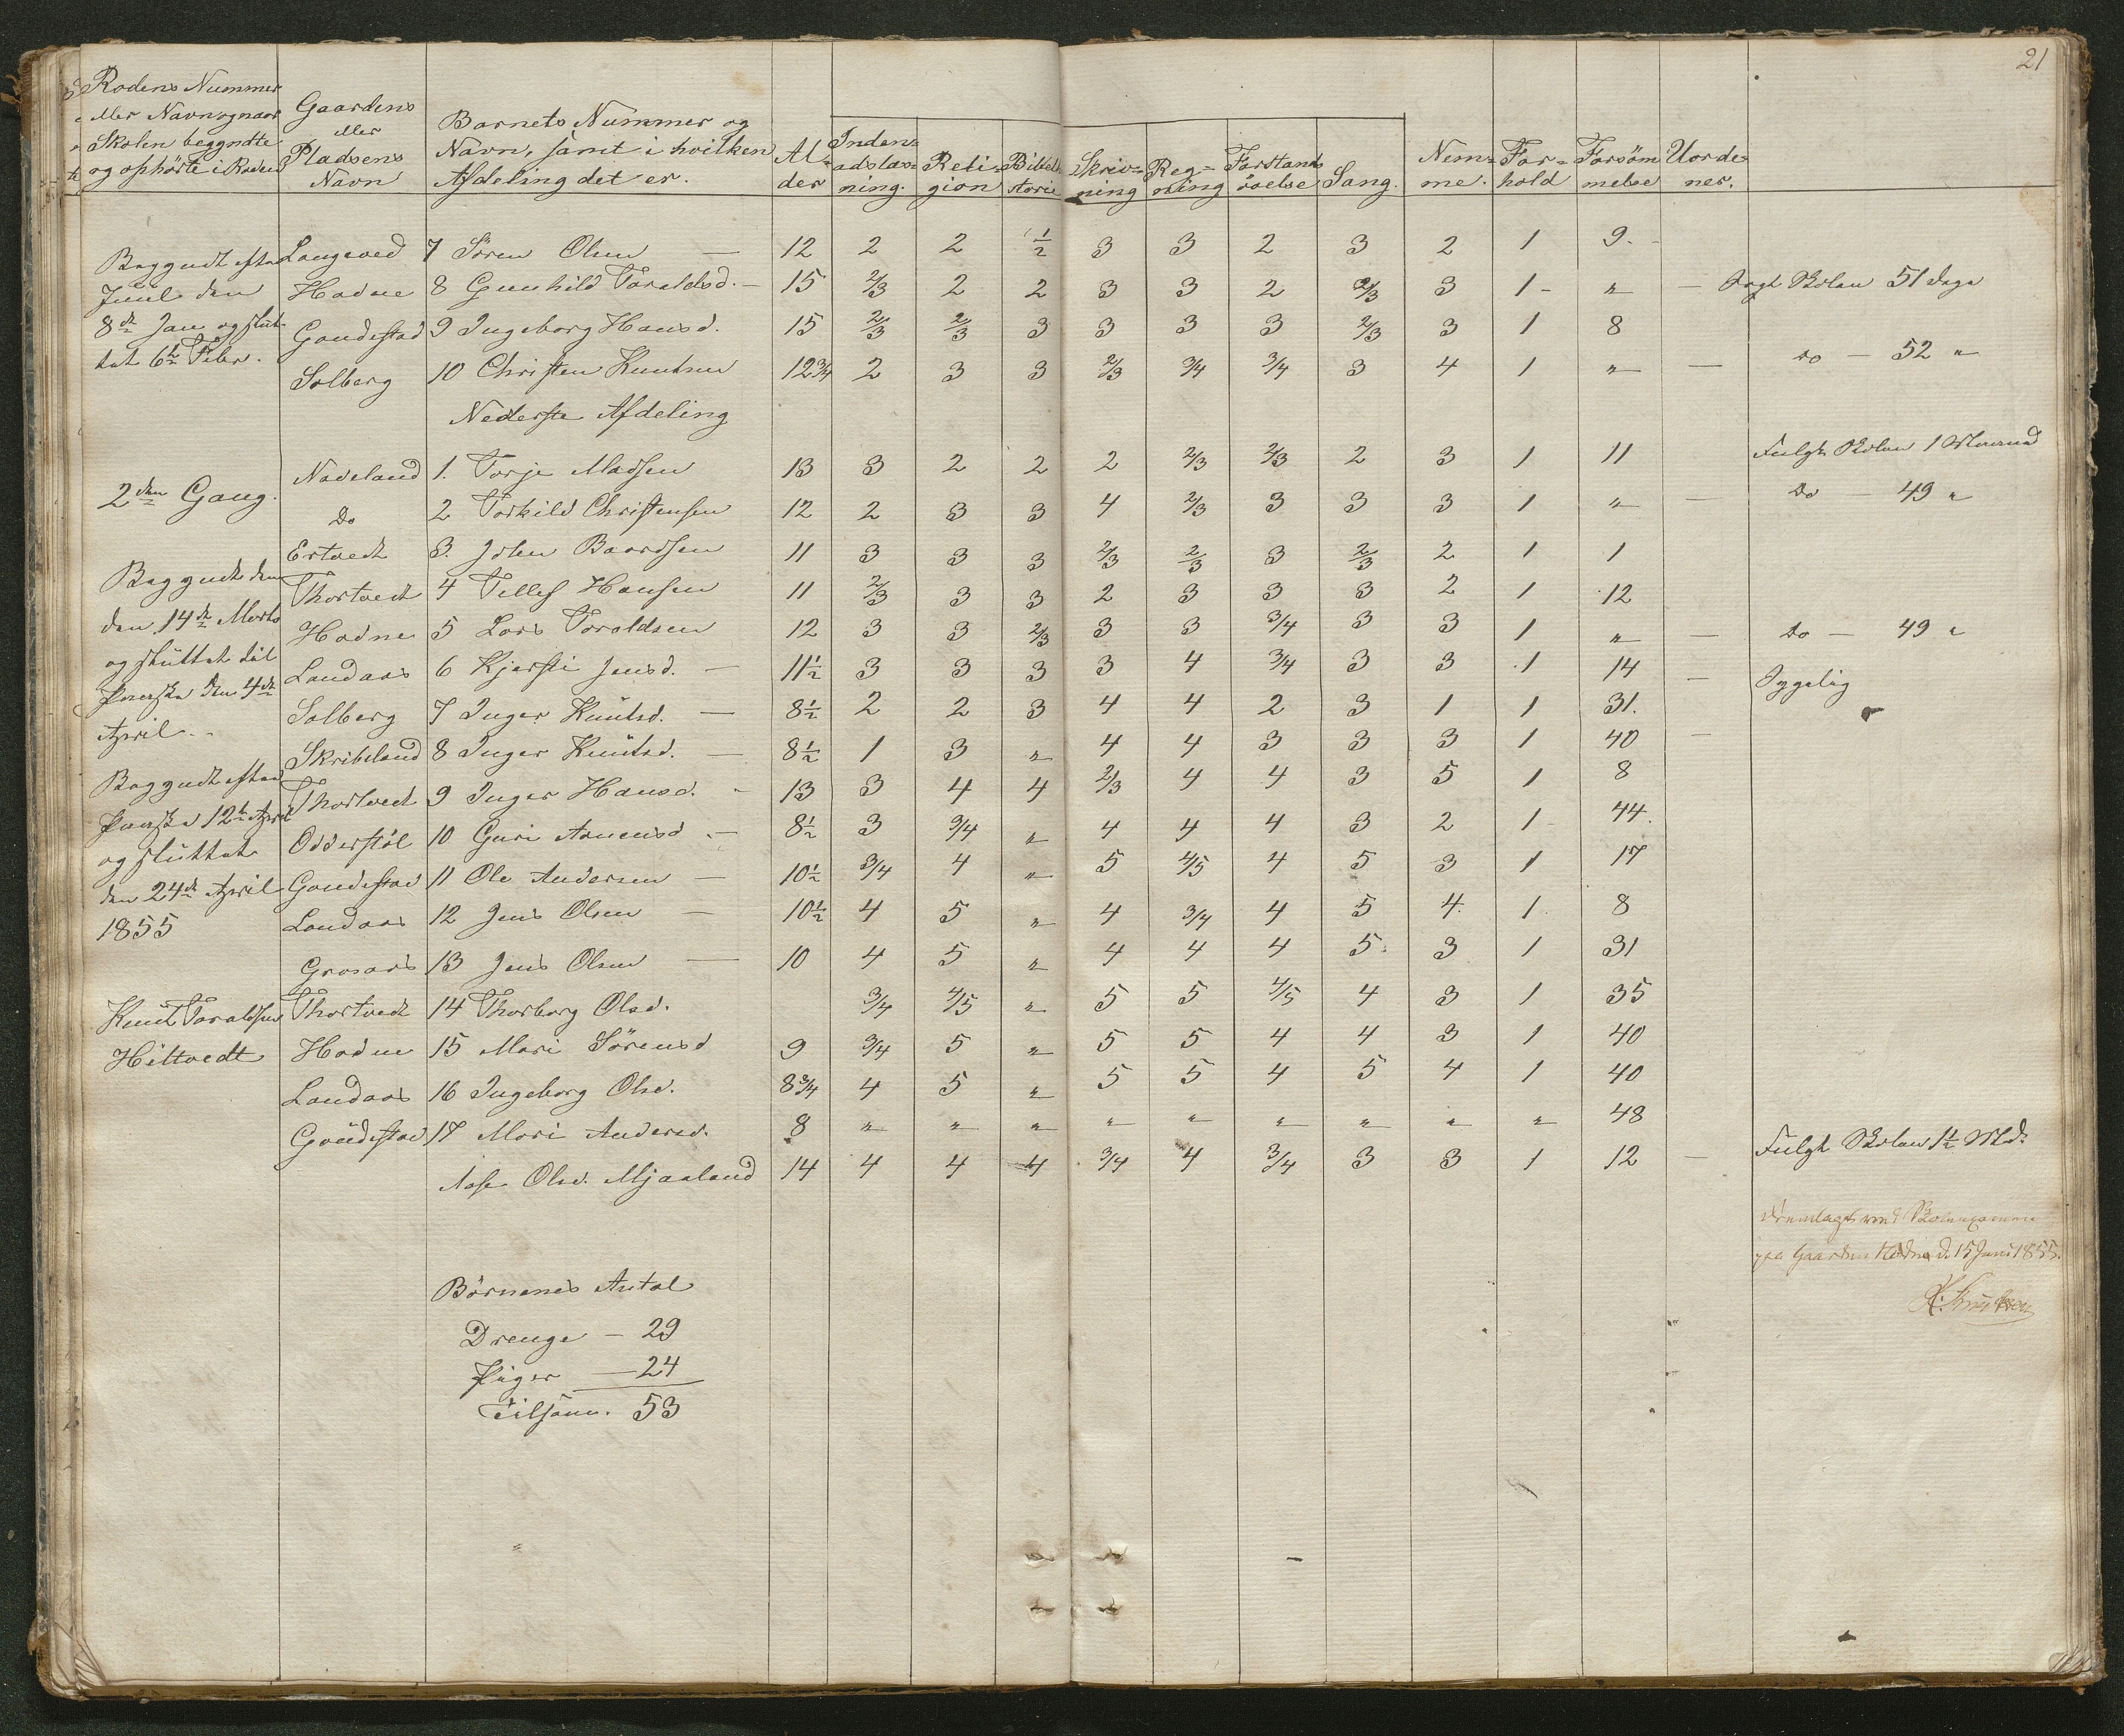 21
Rodens Nummer eller Navn og naar Skolen begyndte og ophörte i Roden | Gaardens eller Pladsens Navn | Barnets Nummer og Navn, samt i hvilken Afdeling det er. | Alder | Indenadslæsning. | Religion | Bibelhistorie | Skrivning | Regning | Forstandsövelse | Sang. | Nemme. | Forhold | Forsömmelse | Uordener.
Begyndt efter Langeved 7 Sören Olsen — 12 2 2 1/2 3 3 2 3 2 1 9.
Juul den Hodne 8 Gunhild Taraldsd. — 15 2/3 2 2 3 3 2 2/3 3 1 - " — Søgt Skolen 51 Dage
8de Jan og slut- Gondestad 9 Ingeborg Hansd. 15 2/3 2/3 3 3 3 3 2/3 3 1 8
tet 6te Febr. Solberg 10 Christen Knutsen 12 3/4 2 3 3 2/3 3/4 3/4 3 4 1 " — Do — 52 "
Nederste Afdeling
2den Gang. Naveland 1. Torje Madsen 13 3 2 2 2 2/3 2/3 2 3 1 11 Fulgt Skolen 1 Maaned
Do 2 Torkild Christensen 12 2 3 3 4 2/3 3 3 3 1 " — Do — 49 "
Ertvedt 3. John Baardsen 11 3 3 3 2/3 2/3 3 2/3 2 1 1
Begyndt den Thortvedt 4 Tellef Hansen 11 2/3 3 3 2 3 3 3 2 1 12
den 14de Marts Hodne 5 Lars Taraldsen 12 3 3 2/3 3 3 3/4 3 3 1 " — Do — 49 "
og sluttet til Landaas 6 Kjersti Jensd. — 11 1/2 3 3 3 3 4 3/4 3 3 1 14 — Sygelig
Paaske den 4de Solberg 7 Inger Knutsd. — 8 1/2 2 2 3 4 4 2 3 1 1 31.
April. Skribeland 8 Inger Knutsd. — 8 1/2 1 3 " 4 4 3 3 3 1 40 —
Begyndt efter Thortvedt 9 Inger Hansd. - 13 3 4 4 2/3 4 4 3 5 1 8
Paaske 12te April Odderstöl 10 Guri Aanensd. — 8 1/2 3 3/4 " 4 4 4 3 2 1 44.
og sluttet Gondestad 11 Ole Andersen — 10 1/2 3/4 4 " 5 4/5 4 5 3 1 17
den 24de April Landaas 12 Jens Olsen — 10 1/2 4 5 " 4 3/4 4 5 4 1 8
1855 Grosaas 13 Jens Olsen — 10 4 5 " 4 4 4 5 3 1 31
Knut Taraldsen Thortvedt 14 Thorborg Olsd. 3/4 4/5 " 5 5 4/5 4 3 1 35
Hiltvedt Hodne 15 Mari Sörensd 9 3/4 5 " 5 5 4 4 3 1 40
Landaas 16 Ingeborg Olsd. 8 3/4 4 5 " 5 5 4 5 4 1 40
Gondestad 17 Mari Andersd. 8 " " " " " " " " " 48
Aase Olsd. Mjaaland 14 4 4 4 3/4 4 3/4 3 3 1 12 — Fulgt Skolen 1 1/2 Md.
Fremlagt ved Skoleexamen
paa Gaarden Hodne d. 15 Juni 1855.
Börnenes Antal
Drenge — 29
Piger — 24
Tilsam. 53